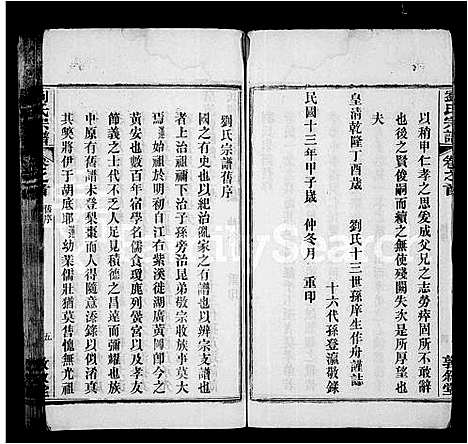 劉氏宗譜 卷之首
以稍申仁孝之思爰成父兄之志勞瘁固所不敢辭
也後之賢俊嗣而續之無使殘闕失次是所厚望也
夫
皇清乾隆丁酉歲 劉氏十三世孫庠生作舟謹誌
十六代孫登瀛敬錄
民國十三年甲子歲 仲冬月 重印
敦敘堂
劉氏宗譜舊序
國之有史也以紀治亂家之有譜也以辨宗支譜也
者上治祖禰下治子孫旁治昆弟敬宗收族事莫大
焉 始祖於明初自江右紫溪徙湖廣黃陂即今之
黃安也數百年宿學名儒食瓊鹿列簧宮以及孝友
節義之士代不乏人足見積德之昌達而彌耀也族
中原有舊譜未登梨棗而人得隨意添錄以似淆真
其奬將伊于胡底耶 幼業儒壯猶莫售愧無光祖
舊序
五
FamilySearch